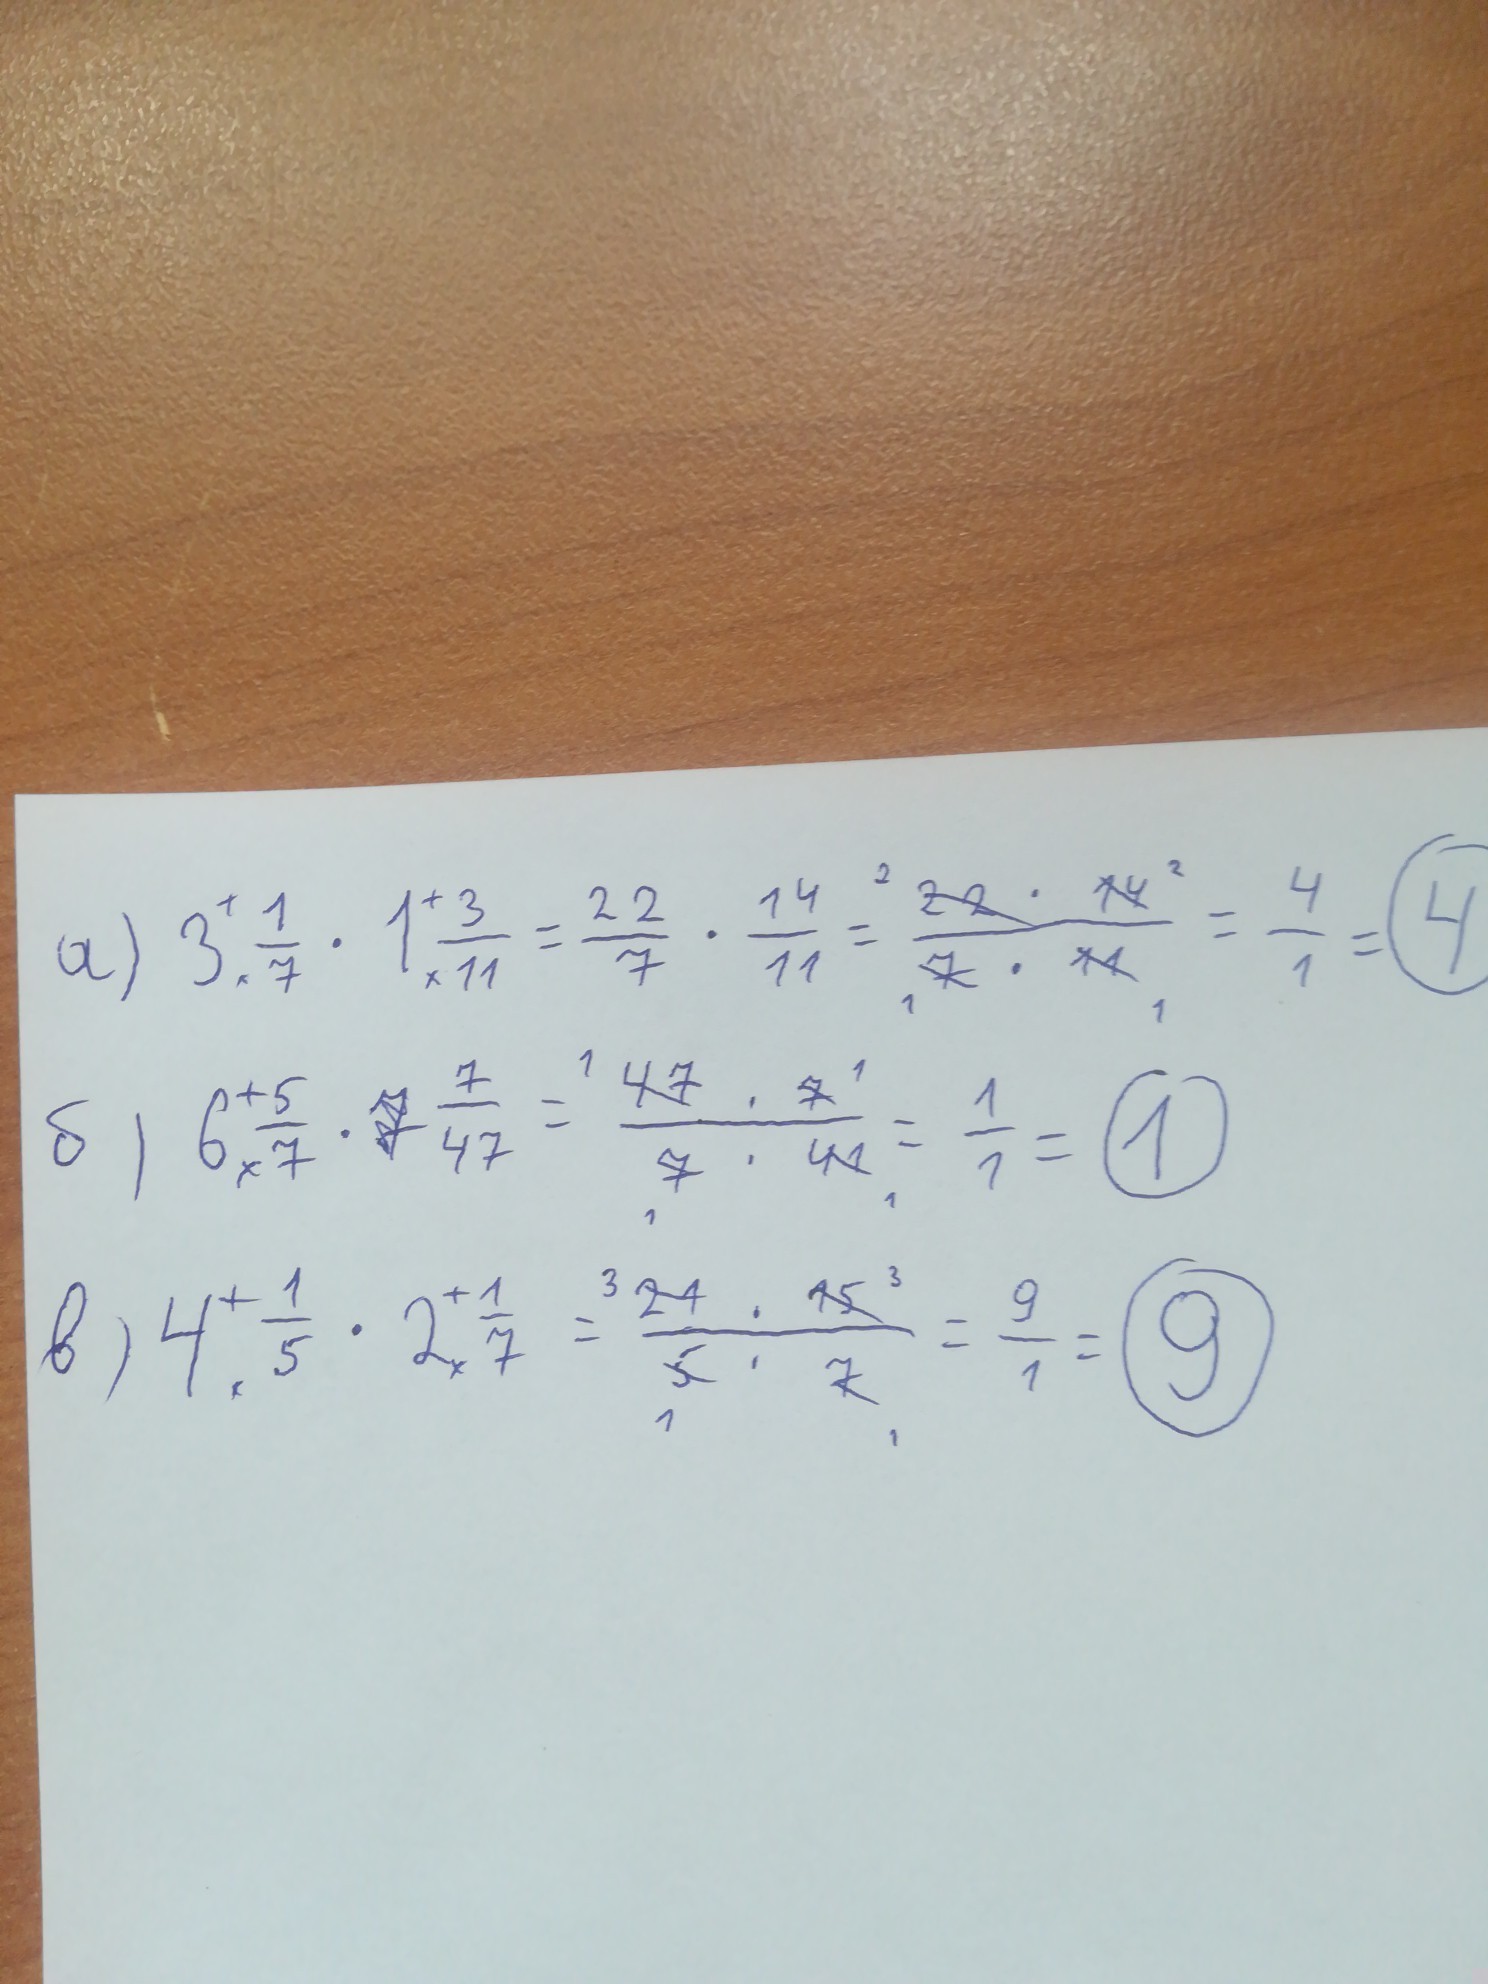 а) 3 + 1/7 · 1 + 3/11 = 22/7 · 14/11 = 2 22 · 14 2 / 1 7 · 11 1 = 4/1 = 4
б) 6 + 5/7 · 7/47 = 1 47 · 7 1 / 1 7 · 41 1 = 1/1 = 1
в) 4 + 1/5 · 2 + 1/7 = 3 21 · 15 3 / 1 5 · 7 1 = 9/1 = 9